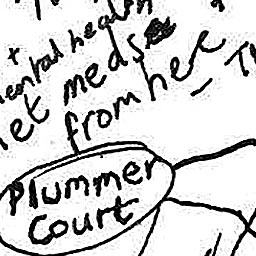 mental health
meds
from here
Plummer
Court